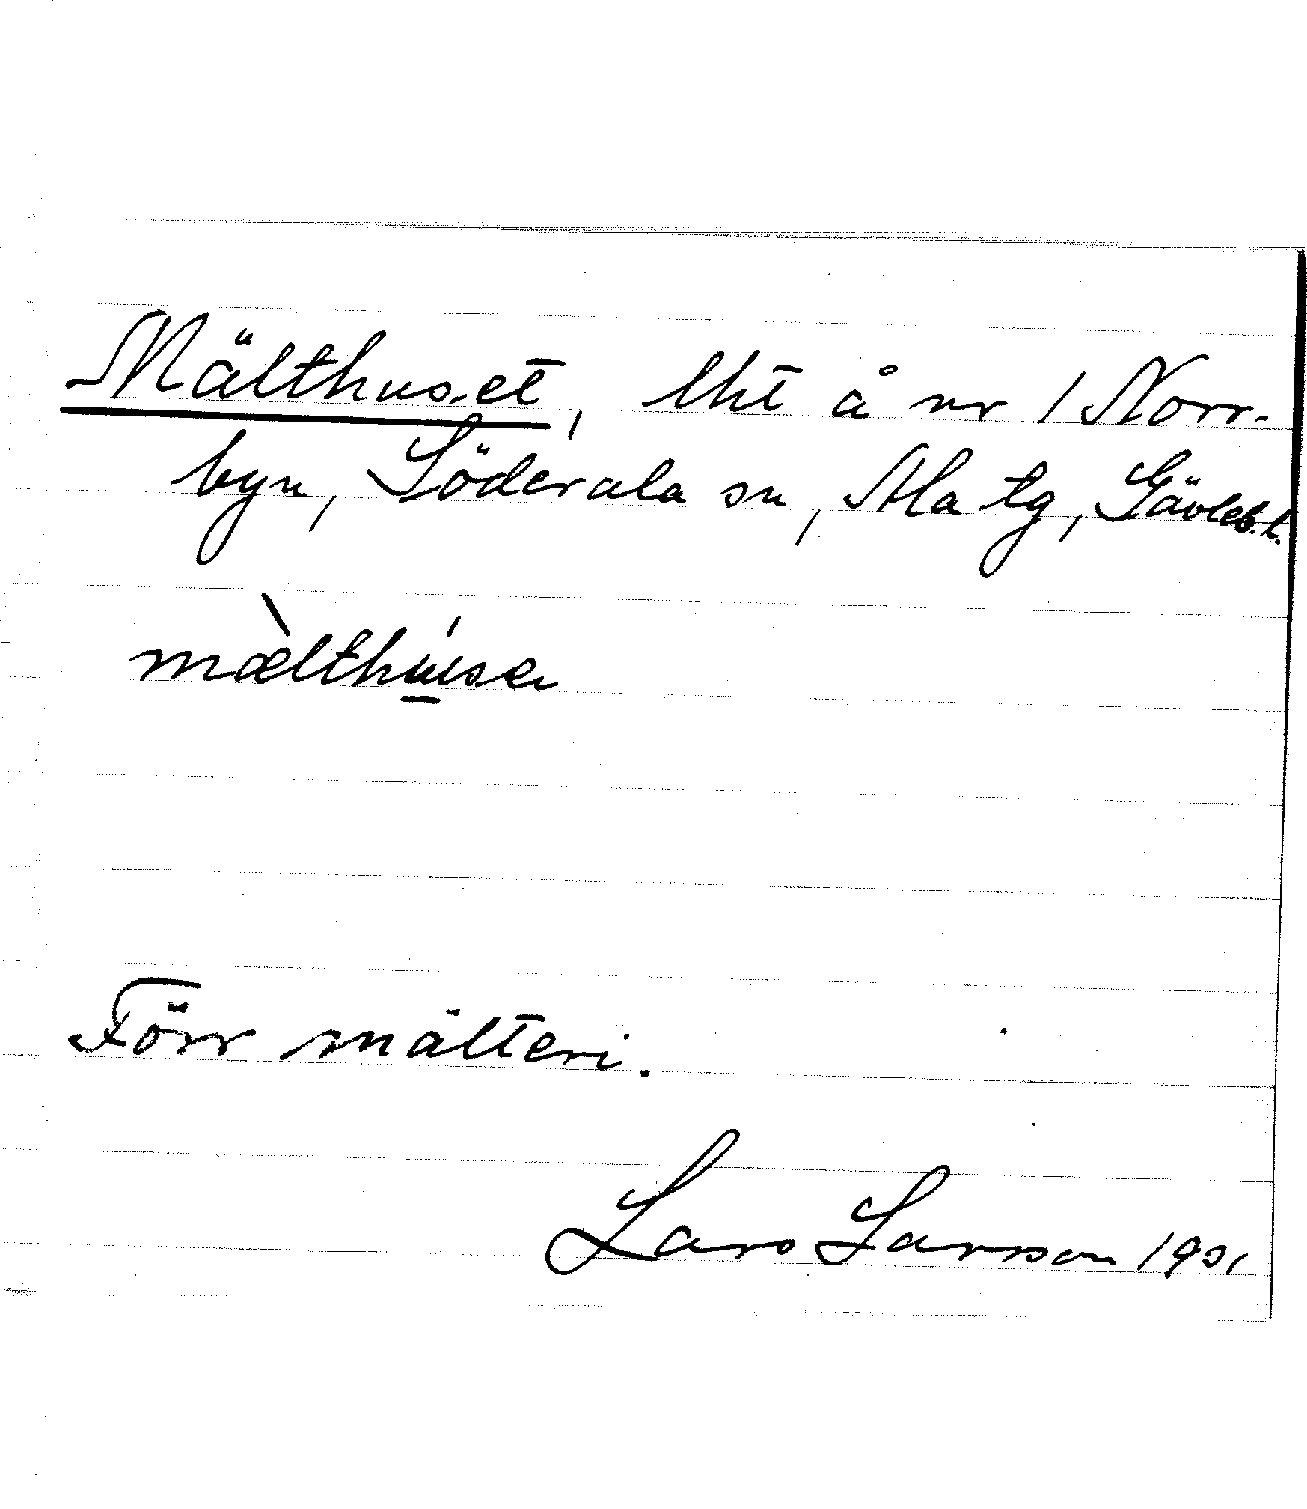 Mälthuset, lht å nr 1 Norr-
byn, Söderala sn, Ala tg, Gävleb. l.
mæ̀lthúse
Förr mälteri.
Lars Larsson 1931